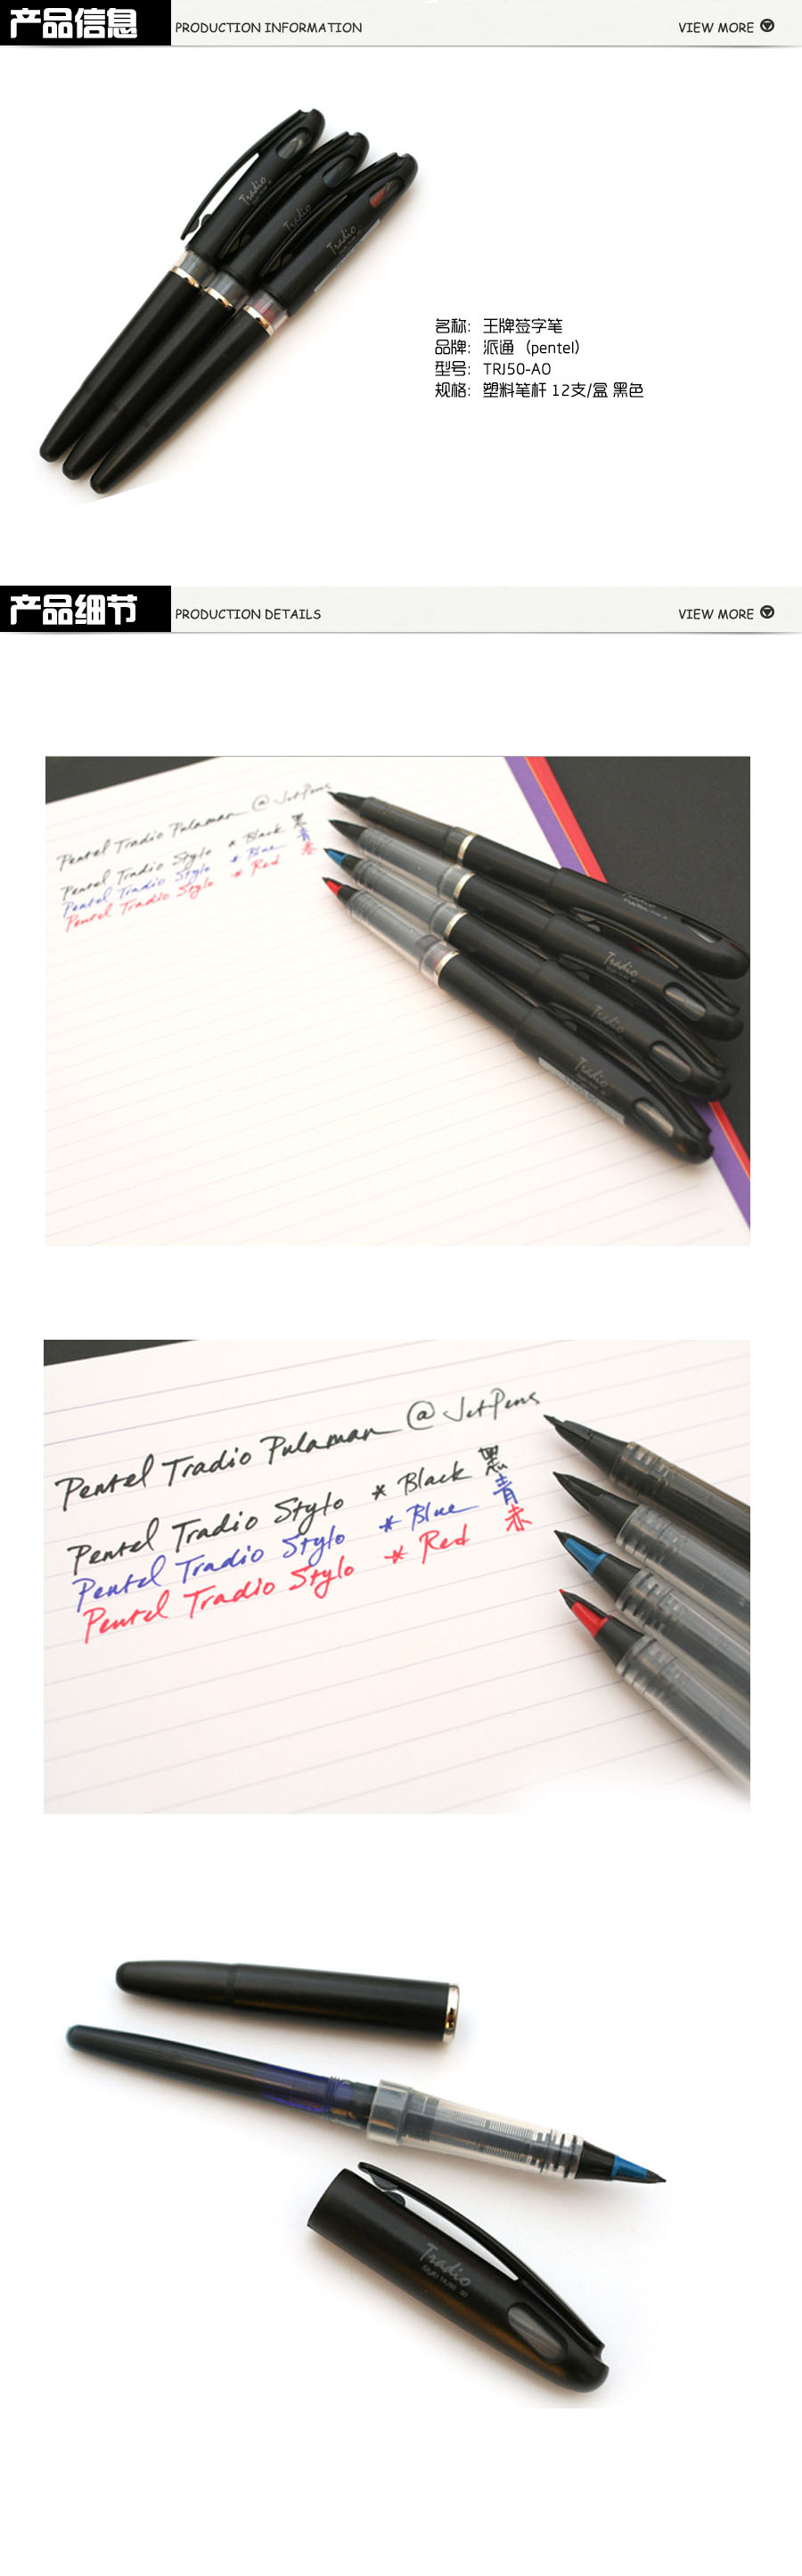 产品信息 PRODUCTION INFORMATION VIEW MORE
Tradio
Tradio
Tradio
名称： 王牌签字笔
品牌： 派通（pentel）
型号： TRJ50-AO
规格： 塑料笔杆 12支/盒 黑色
产品细节 PRODUCTION DETAILS VIEW MORE
Pentel Tradio Pulaman @ JetPens
Pentel Tradio Stylo * Black 黒
Pentel Tradio Stylo * Blue 青
Pentel Tradio Stylo * Red 赤
Tradio
Tradio
Tradio
Pentel Tradio Pulaman @ JetPens
Pentel Tradio Stylo * Black 黒
Pentel Tradio Stylo * Blue 青
Pentel Tradio Stylo * Red 赤
Tradio